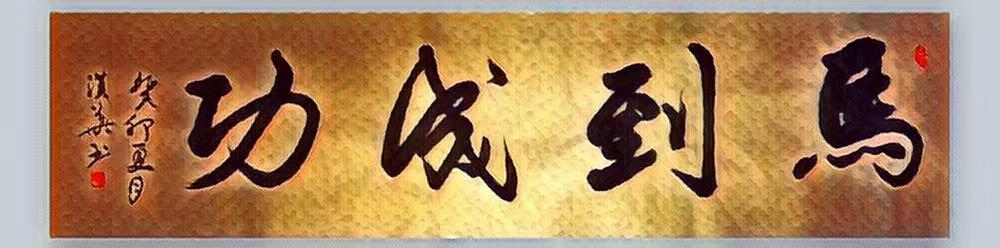 馬到成功
癸卯夏月
淇華书